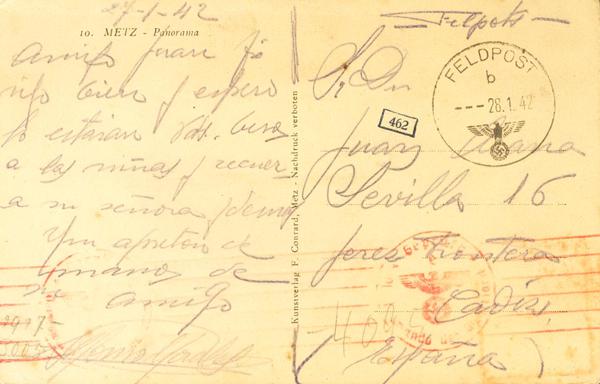 27-1-42
10. METZ - Panorama
Amigo Juan yo
sigo bien y espero
lo estarán Vds. besos
a las niñas y recuer
a su señora y demas
Un apreton de
manos de
su amigo
Kunstverlag F. Conrard, Metz - Nachdruck verboten
Felpots
FELDPOST
b
--- 28.1.42
462
Sr. Dn
Juan
Sevilla 16
Jeres Frontera
Cadiz
(España)